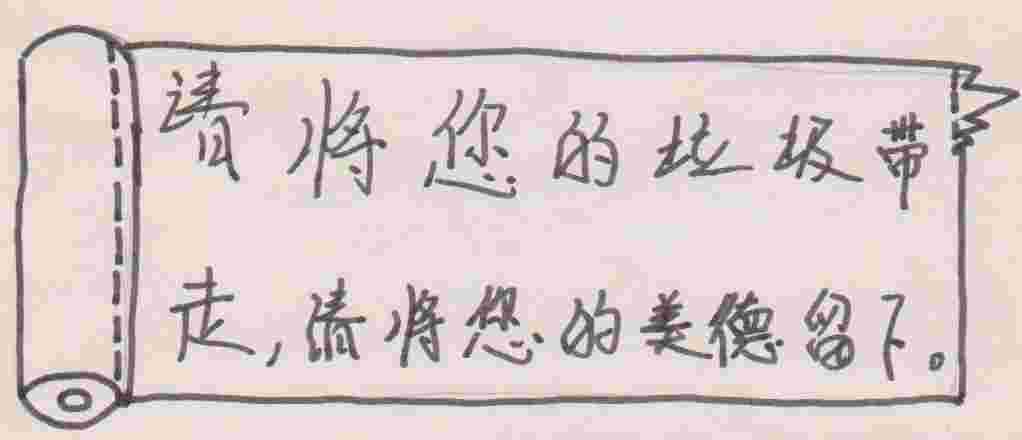 请将您的垃圾带
走,请将您的美德留下。